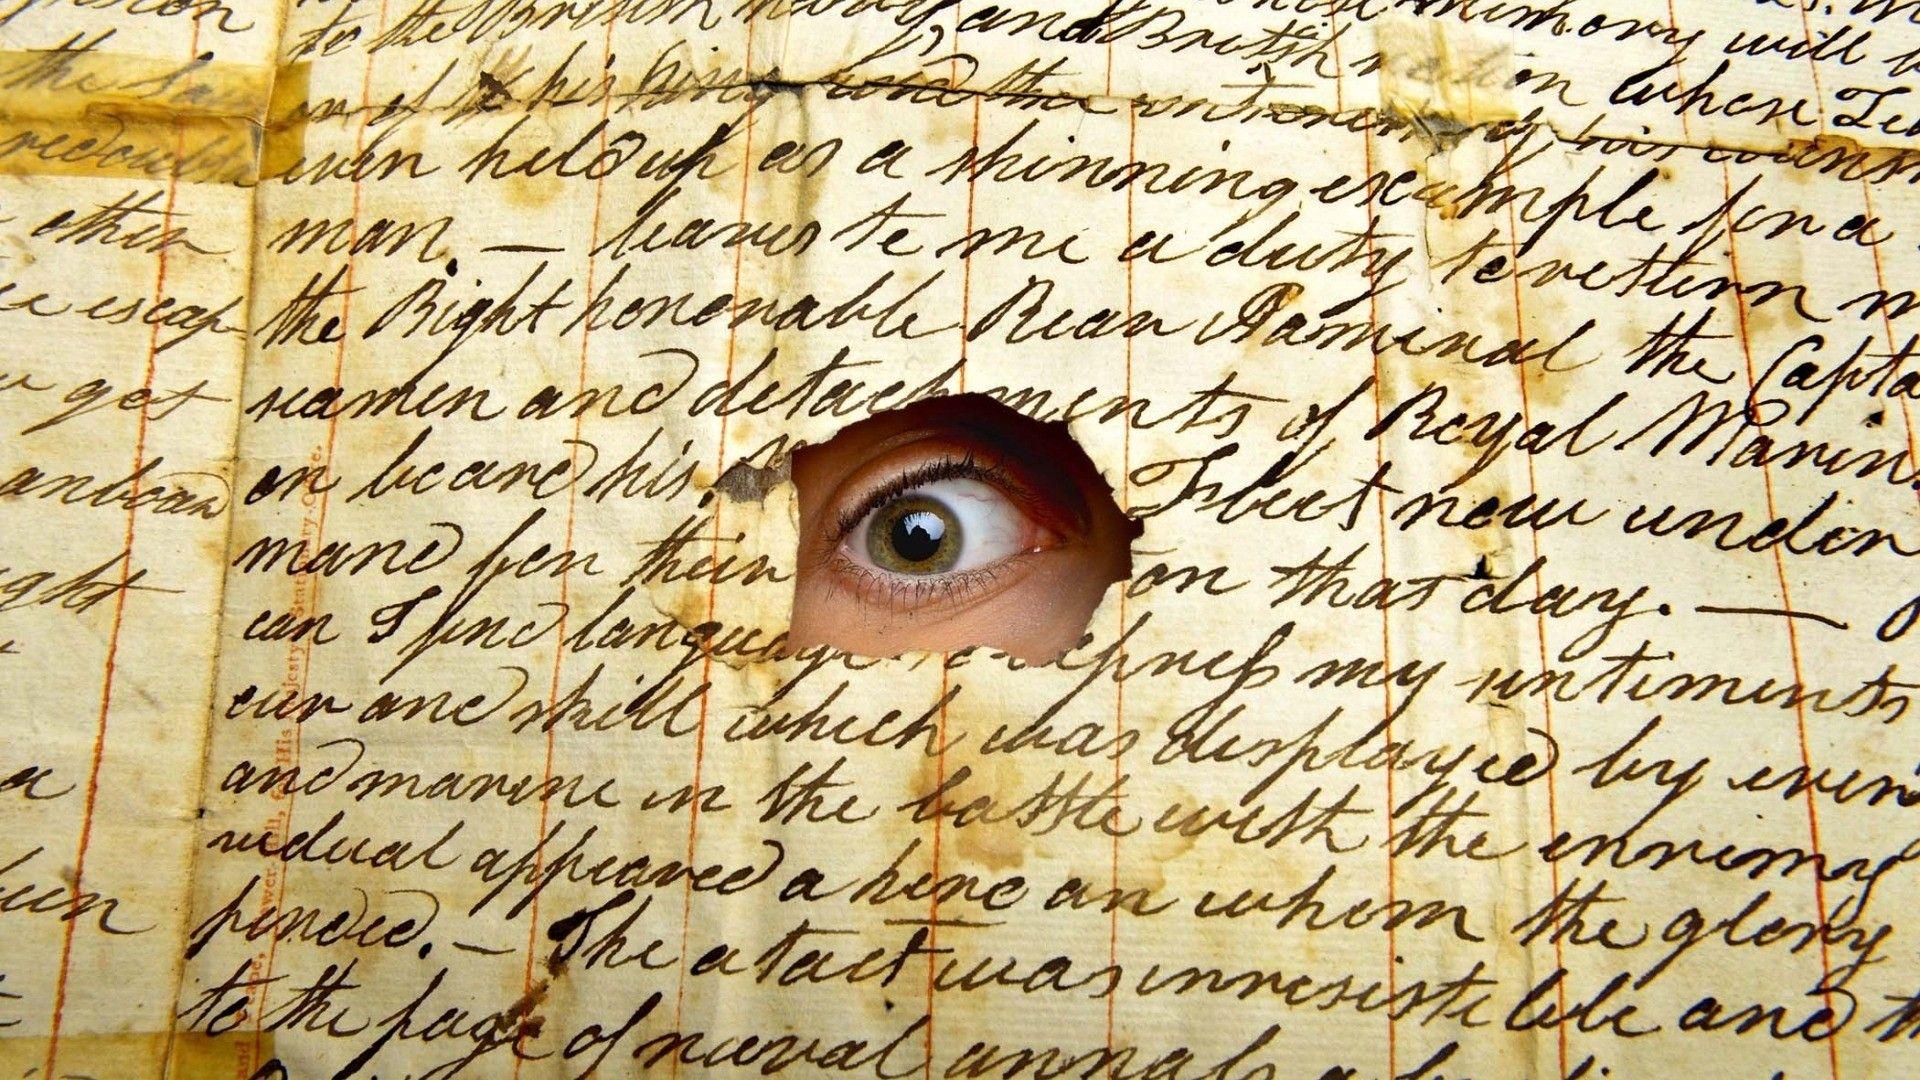 to the British navy and British nation whose
memory will
his king and the interest of his
even held up as a shinning example for a
man. — leaves te me a duty to return
the Right honorable Rear Admiral the Capta
seamen and detachments of Royal Marin
on board his Fleet now under
mand for their on that day. —
can I find language to express my sentiments
our and skill which was displayed by every
and marine in the battle with the ennimy
vidual appeared a hero on whom the glory
pended. — The atact was irresisteble and th
to the page of naval annals a
the
redouble
other
escap-
get
anboan
ght
a
een